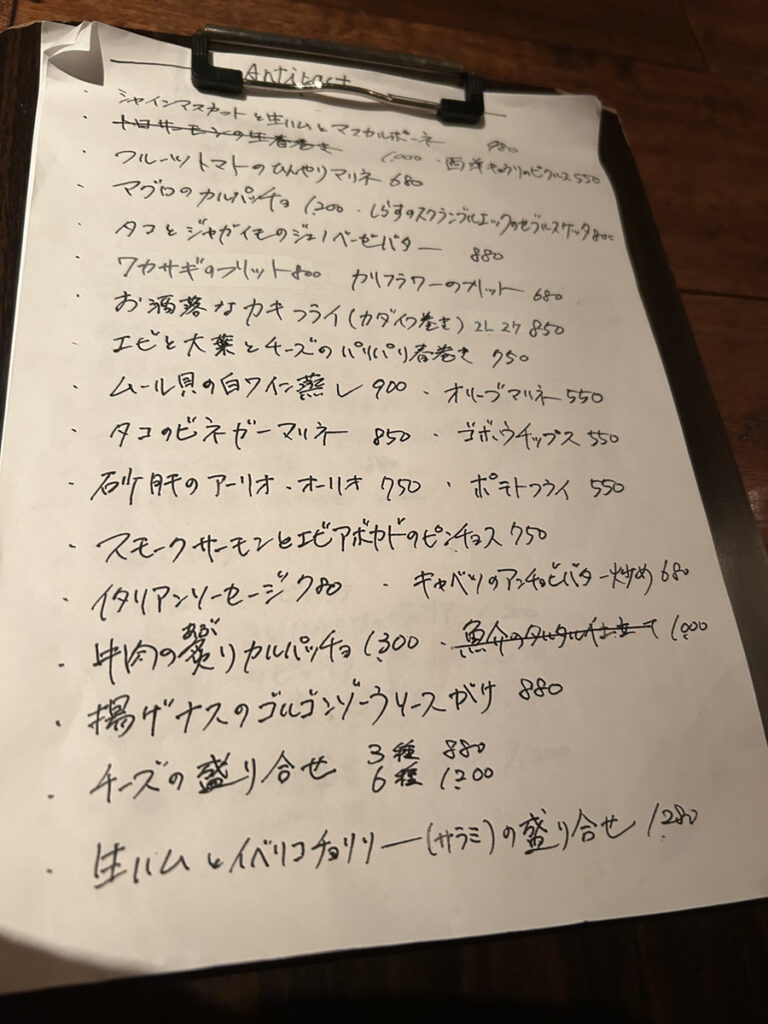 Antipast
・シャインマスカットと生ハムとマスカルポーネ 980
・トロサーモンの生春巻き 1,000 ・西洋キュウリのピクルス 550
・フルーツトマトのひんやりマリネ 680
・マグロのカルパッチョ 1,200 ・しらすのスクランブルエッグのせブルスケッタ 800
・タコとジャガイモのジェノベーゼバター 880
・ワカサギのフリット 800 カリフラワーのフリット 680
・お洒落なカキフライ(カダイフ巻き) 2コ 850
・エビと大葉とチーズのパリパリ春巻き 750
・ムール貝の白ワイン蒸し 900 ・オリーブマリネ 550
・タコのビネガーマリネ 850 ・ゴボウチップス 550
・砂肝のアーリオ・オーリオ 750 ・ポテトフライ 550
・スモークサーモンとエビアボカドのピンチョス 750
・イタリアンソーセージ 780 ・キャベツのアンチョビバター炒め 680
・牛肉の炙りカルパッチョ 1,300 ・魚介のタルタル仕立て 1,000
あぶ
・揚げナスのゴルゴンゾーラソースがけ 880
・チーズの盛り合せ 3種 880
6種 1,200
・生ハムとイベリコチョリソー(サラミ)の盛り合せ 1,280